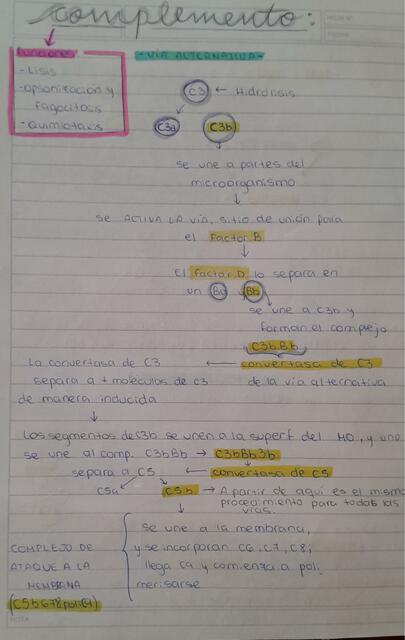 complemento:
Funciones
- Lisis
- opsonización y
fagocitosis
- Quimiotaxis
- VÍA ALTERNATIVA -
C3 ← Hidrólisis
C3a C3b
se une a partes del
microorganismo
↓
se ACTIVA LA vía, sitio de unión para
el Factor B
↓
El factor D lo separa en
un Ba Bb
se une a C3b y
forman el complejo
C3bBb
La convertasa de C3 ← convertasa de C3
separa a + moléculas de C3 de la vía alternativa
de manera inducida
↓
Los segmentos de C3b se unen a la superf del MO, y uno
se une al comp. C3bBb → C3bBb3b
separa a C5 ← convertasa de C5
C5a C5b → A partir de aquí es el mismo
procedimiento para todas las
vías.
COMPLEJO DE
ATAQUE A LA
MEMBRANA
(C5b678poli(9)
se une a la membrana,
y se incorporan C6, C7, C8;
llega C9 y comienza a poli-
merisarse